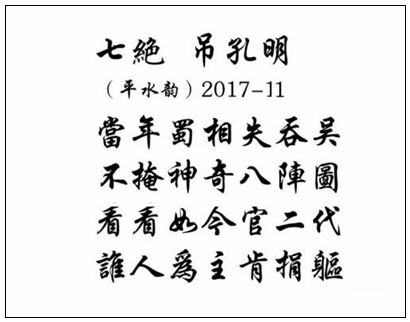 七絶 吊孔明
（平水韵）2017-11
當年蜀相失吞吴
不掩神奇八陣圖
看看如今官二代
誰人爲主肯捐軀